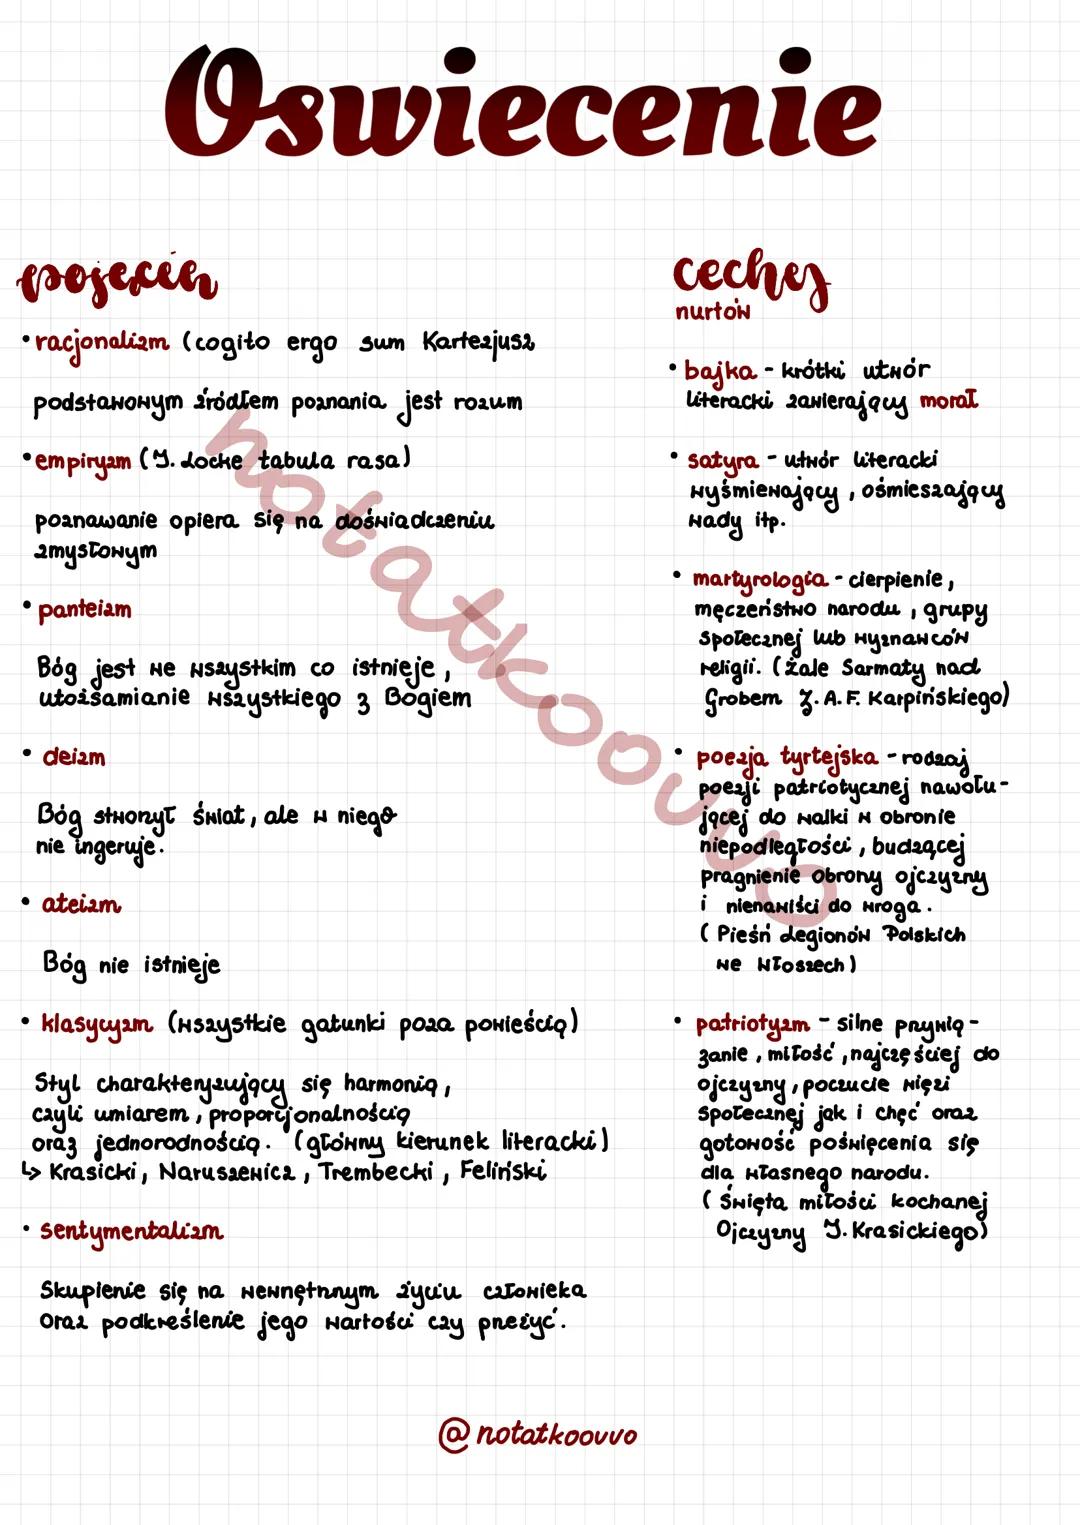 Oswiecenie
pojęcia
• racjonalizm (cogito ergo sum Kartezjusz
podstawowym źródłem poznania jest rozum
• empiryzm (J. Locke tabula rasa)
poznawanie opiera się na doświadczeniu
zmysłowym
• panteizm
Bóg jest we wszystkim co istnieje,
utożsamianie wszystkiego z Bogiem
• deizm
Bóg stworzył świat, ale w niego
nie ingeruje.
• ateizm
Bóg nie istnieje
• klasycyzm (wszystkie gatunki poza powieścią)
Styl charakteryzujący się harmonią,
czyli umiarem, proporcjonalnością
oraz jednorodnością. (główny kierunek literacki)
↳ Krasicki, Naruszewicz, Trembecki, Feliński
• sentymentalizm
Skupienie się na wewnętrznym życiu człowieka
Oraz podkreślenie jego wartości czy przeżyć.
cechy
nurtów
• bajka - krótki utwór
literacki zawierający morał
• satyra - utwór literacki
wyśmiewający, ośmieszający
wady itp.
• martyrologia - cierpienie,
męczeństwo narodu, grupy
społecznej lub wyznawców
religii. (Żale Sarmaty nad
Grobem Z. A. F. Karpińskiego)
• poezja tyrtejska - rodzaj
poezji patriotycznej nawołu-
jącej do walki w obronie
niepodległości, budzącej
pragnienie obrony ojczyzny
i nienawiści do wroga.
(Pieśń Legionów Polskich
we Włoszech)
• patriotyzm - silne przywią-
zanie, miłość, najczęściej do
ojczyzny, poczucie więzi
społecznej jak i chęć oraz
gotowość poświęcenia się
dla własnego narodu.
(Święta miłości kochanej
Ojczyzny J. Krasickiego)
notatkoovvo
@notatkoovvo